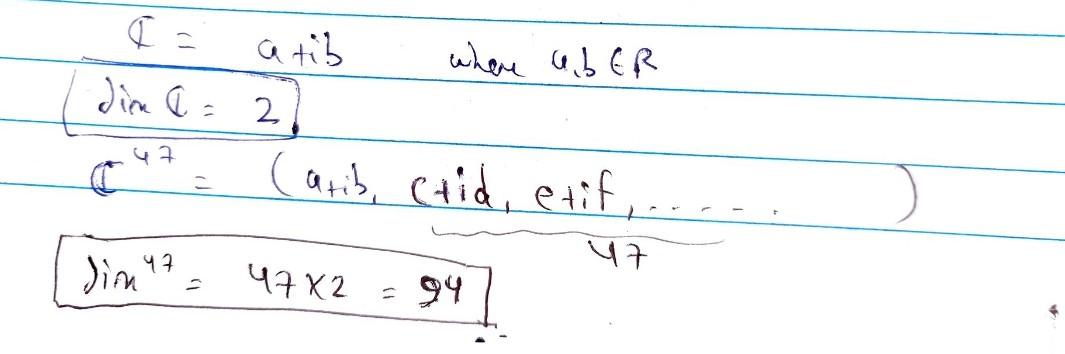 ℂ = a+ib where a,b ∈ R
dim ℂ = 2
ℂ⁴⁷ = (a+ib, c+id, e+if, ....... )
47
dim⁴⁷ = 47×2 = 94